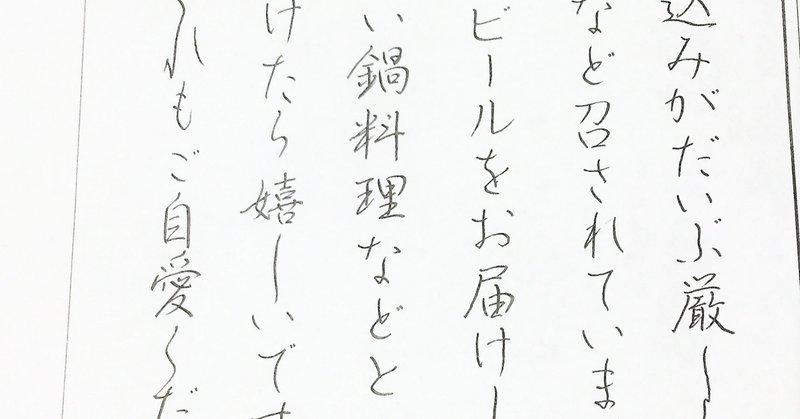 込みがだいぶ厳し
など召されていま
ビールをお届けし
い鍋料理などと
けたら嬉しいです
れもご自愛くだ